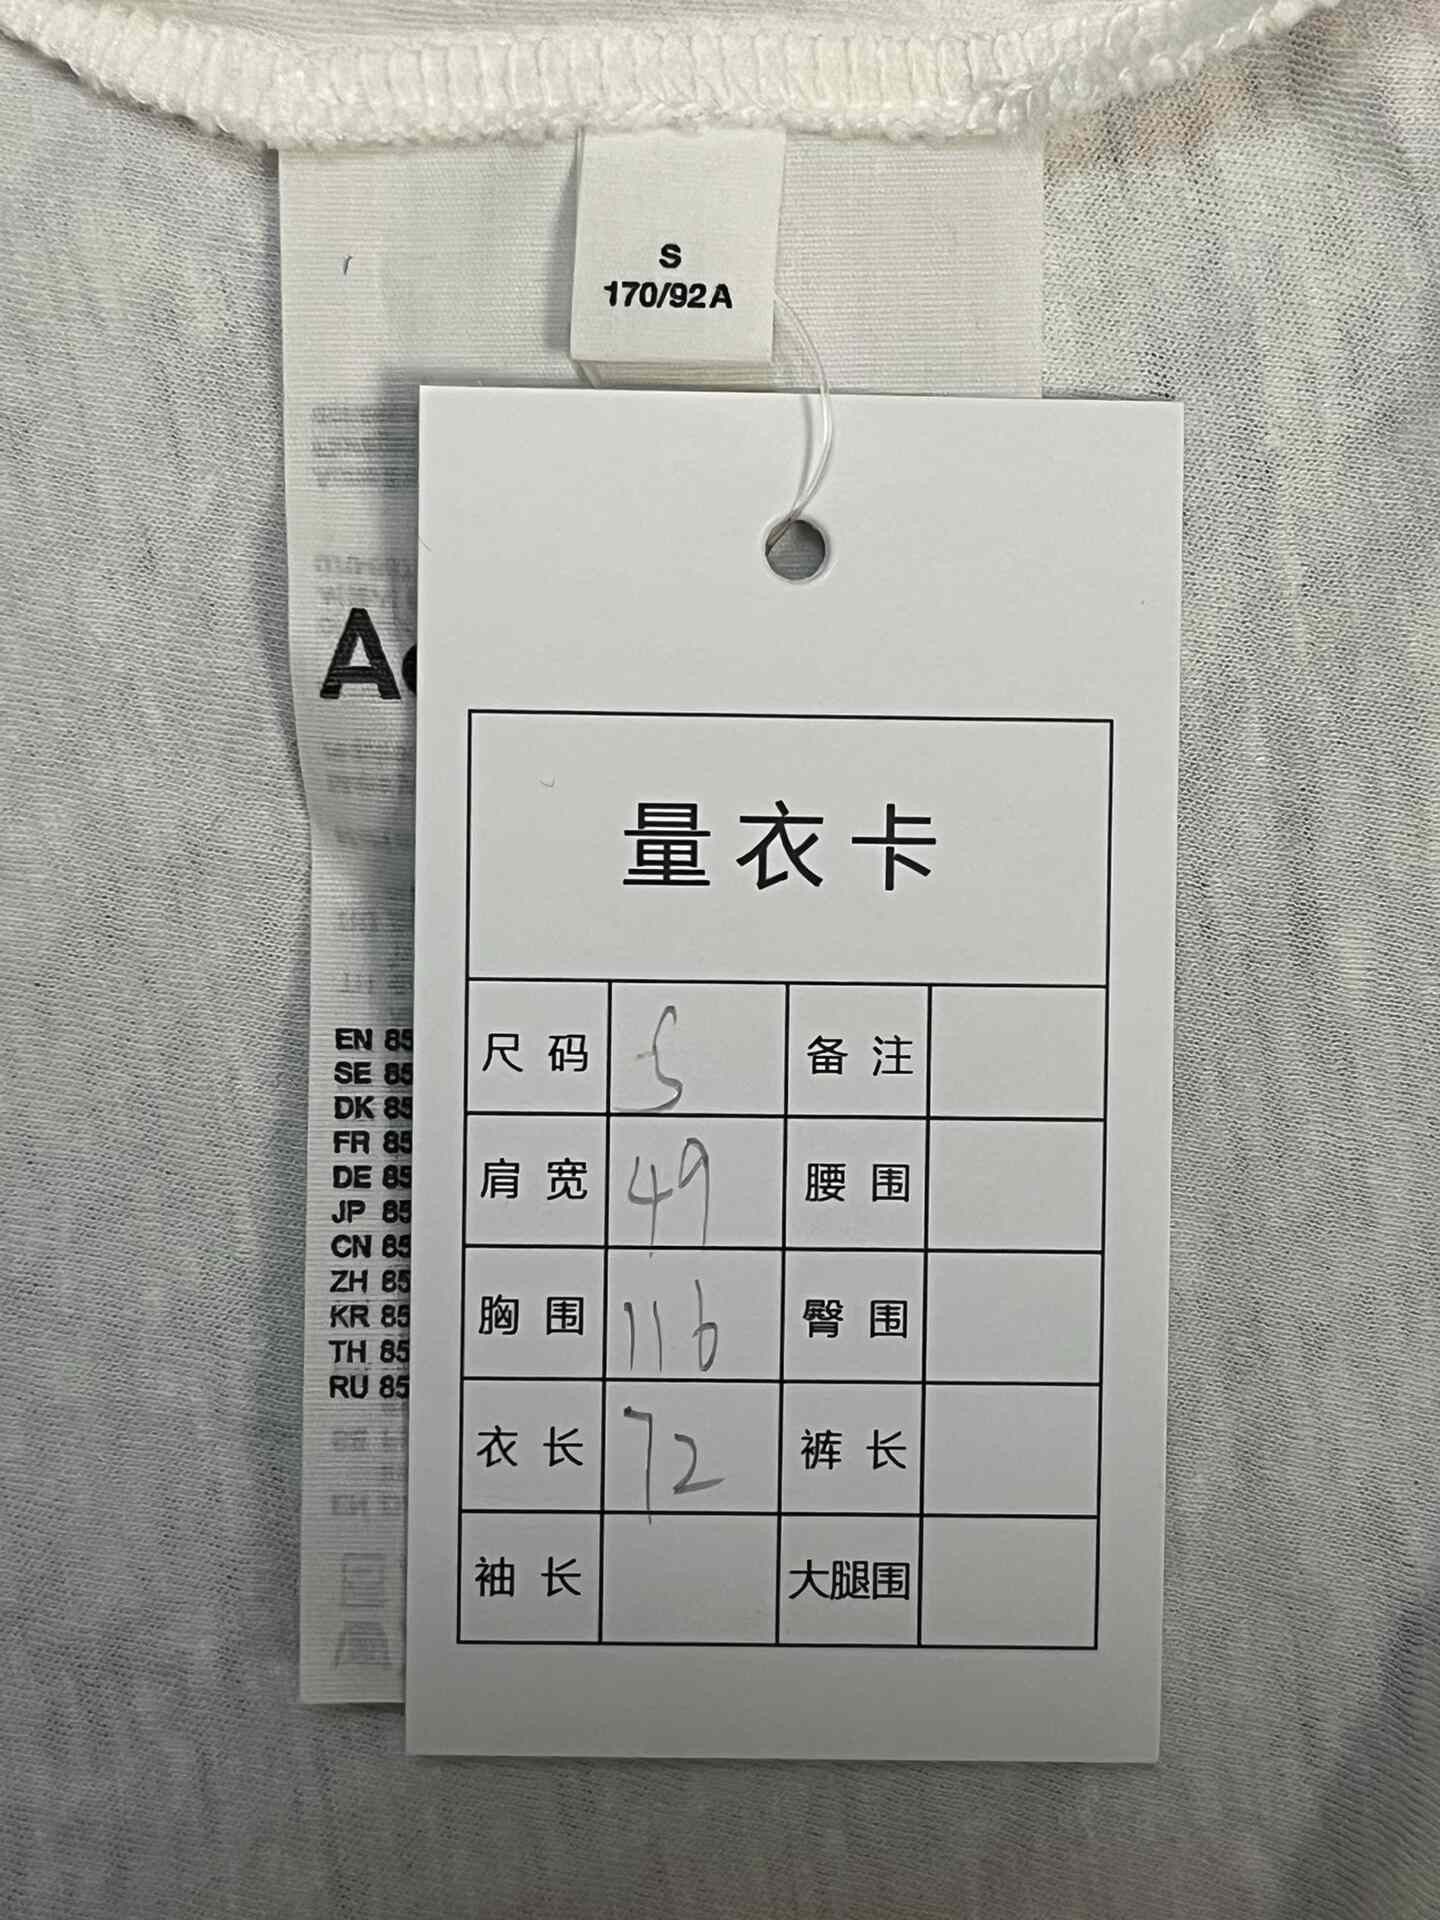 S
170/92A
A
量衣卡
尺码 S 备注
肩宽 49 腰围
胸围 116 臀围
衣长 72 裤长
袖长 大腿围
EN 85
SE 85
DK 85
FR 85
DE 85
JP 85
CN 85
ZH 85
KR 85
TH 85
RU 85